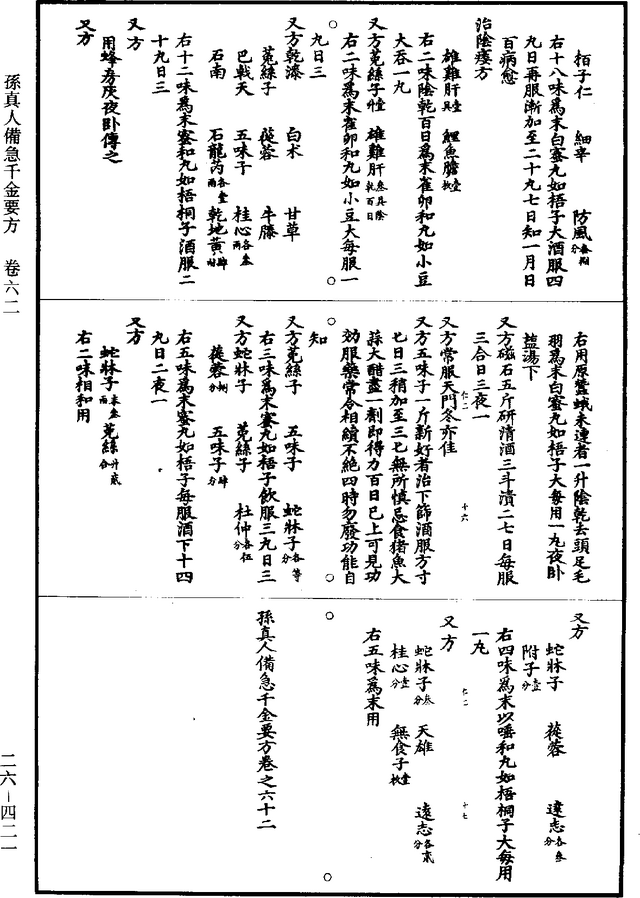 栢子仁　細辛　防風各捌分
右十八味爲末白蜜丸如梧子大酒服四
九日再服漸加至二十九七日知一月日
百病愈
治陰痿方
雄雞肝壹具　鯉魚膽肆枚
右二味陰乾百日爲末雀卵和丸如小豆
大吞一丸
又方菟絲子壹升　雄雞肝叁具陰乾百日
右二味爲末雀卵和丸如小豆大每服一
丸日三
又方乾漆　白朮　甘草
菟絲子　蓯蓉　牛膝
巴戟天　五味子　桂心各叁兩
石南　石龍芮各壹兩　乾地黃肆兩
右十二味爲末蜜和丸如梧桐子酒服二
十丸日三
又方
用蜂房灰夜卧傅之
又方
右用原蠶蛾未連者一升陰乾去頭足毛
羽爲末白蜜丸如梧子大每用一丸夜卧
鹽湯下
又方磁石五斤研清酒三斗漬二七日每服
三合日三夜一
又方常服天門冬亦佳
又方五味子一斤新好者治下篩酒服方寸
匕日三稍加至三匕無所慎忌食豬魚大
蒜大醋盡一劑即得力百日已上可見功
効服藥常令相續不絕四時勿廢功能自
知
又方菟絲子　五味子　蛇牀子各等分
右三味爲末蜜丸如梧子飲服三丸日三
又方蛇牀子　菟絲子　杜仲各伍分
蓯蓉捌分　五味子肆分
右五味爲末蜜丸如梧子每服酒下十四
丸日二夜一
又方
蛇牀子末叁兩　菟絲汁貳合
右二味相和用
又方
蛇牀子　蓯蓉　遠志各叁分
附子壹分
右四味爲末以唾和丸如梧桐子大每用
一丸
又方
蛇牀子叁分　天雄　遠志各貳分
桂心壹分　無食子壹枚
右五味爲末用
孫真人備急千金要方卷之六十二
仁二
十六
仁二
十七
孫真人備急千金要方　卷六二
二六－四二一